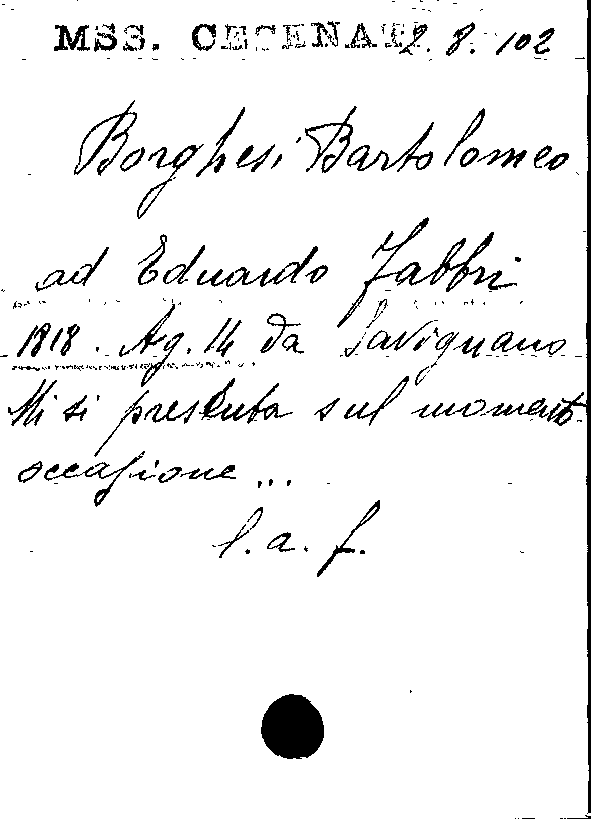 MSS. CECENATI 2. 8. 102
Borghesi Bartolomeo
ad Eduardo Fabbri
1818. Ag. 14 da Savignano
Mi si presenta sul momento
occasione ...
l. a. f.